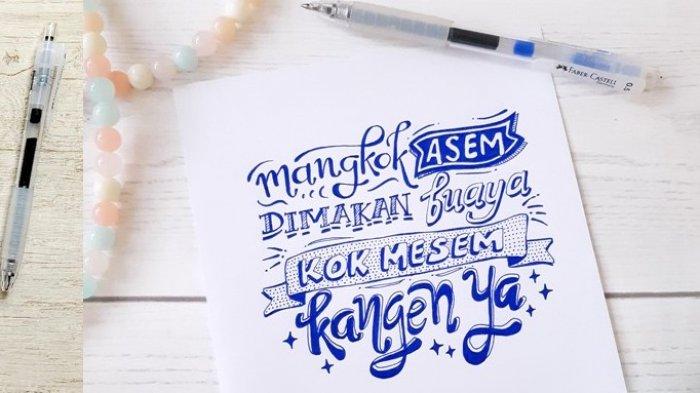 mangkok ASEM
DIMAKAN buaya
KOK MESEM
kangen ya
FABER-CASTELL
0.5